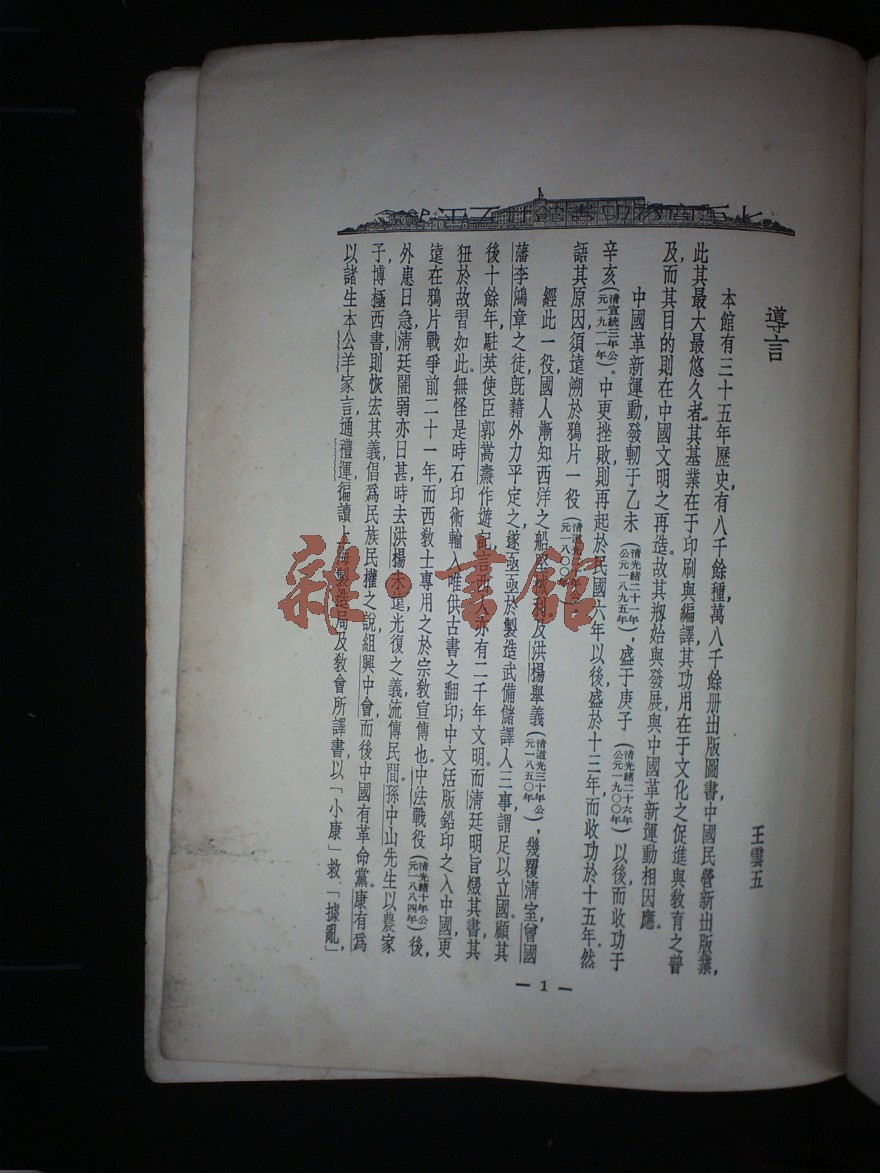 導言
王雲五
本館有三十五年歷史，有八千餘種萬八千餘冊出版圖書，中國民營新出版業，
此其最大最悠久者。其基業在于印刷與編譯，其功用在于文化之促進與教育之普
及，而其目的則在中國文明之再造。故其刱始與發展，與中國革新運動相因應。
中國革新運動，發軔于乙未（清光緒二十一年公元一八九五年），盛于庚子（清光緒二十六年公元一九〇〇年）以後，而收功于
辛亥（清宣統三年公元一九一一年）。中更挫敗，則再起於民國六年以後，盛於十三年，而收功於十五年。然
語其原因，須遠溯於鴉片一役（清道光二十年公元一八四〇年）。
經此一役，國人漸知西洋之船堅械利。及洪楊舉義（清道光三十年公元一八五〇年），幾覆清室，曾國
藩李鴻章之徒，旣藉外力平定之，遂亟亟於製造武備儲譯人三事，謂足以立國。顧其
後十餘年，駐英使臣郭嵩燾作遊記，言西人亦有二千年文明，而清廷明旨燬其書，其
狃於故習如此。無怪是時石印術輸入，唯供古書之翻印；中文活版鉛印之入中國，更
遠在鴉片戰爭前二十一年，而西教士專用之於宗教宣傳也。中法戰役（清光緒十年公元一八八四年）後，
外患日急，清廷闇弱亦日甚，時去洪楊未遠，光復之義，流傳民間。孫中山先生以農家
子，博極西書，則恢宏其義，倡爲民族民權之說，組興中會，而後中國有革命黨。康有爲
以諸生本公羊家言，通禮運，徧讀上海製造局及教會所譯書，以「小康」救「據亂」，
— 1 —
雜·書館